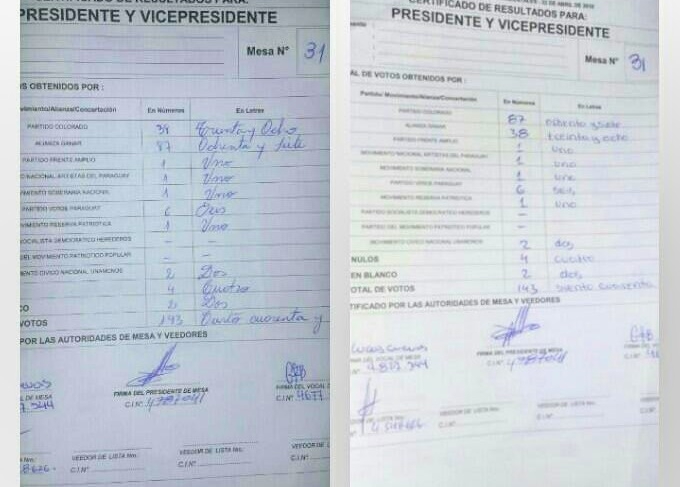 CERTIFICADO DE RESULTADOS PARA:
PRESIDENTE Y VICEPRESIDENTE
Mesa N° 31
OS OBTENIDOS POR :
ovimiento/Alianza/Concertación En Números En Letras
PARTIDO COLORADO 38 Treinta y Ocho
ALIANZA GANAR 87 Ochenta y Siete
PARTIDO FRENTE AMPLIO 1 Uno
O NACIONAL ARTISTAS DEL PARAGUAY 1 Uno
MIENTO SOBERANIA NACIONAL 1 Uno
PARTIDO VERDE PARAGUAY 6 Seis
VIMIENTO RESERVA PATRIOTICA 1 Uno
SOCIALISTA DEMOCRATICO HEREDEROS - -
DEL MOVIMIENTO PATRIOTICO POPULAR - -
ENTO CIVICO NACIONAL UNAMONOS 2 Dos
4 Cuatro
CO 2 Dos
VOTOS 143 Ciento cuarenta y
POR LAS AUTORIDADES DE MESA Y VEEDORES
AL DE MESA FIRMA DEL PRESIDENTE DE MESA FIRMA DEL VOCAL DE
C.I.N° 4787041 C.I.N° 4677
VEEDOR DE LISTA Nro. VEEDOR DE LISTA Nro. VEEDOR DE L
C.I.N° C.I.N°
22 DE ABRIL DE 2018
CERTIFICADO DE RESULTADOS PARA:
PRESIDENTE Y VICEPRESIDENTE
Mesa N° 31
AL DE VOTOS OBTENIDOS POR :
Partido/Movimiento/Alianza/Concertación En Números En Letras
PARTIDO COLORADO 87 ochenta y siete
ALIANZA GANAR 38 treinta y ocho
PARTIDO FRENTE AMPLIO 1 uno
MOVIMIENTO NACIONAL ARTISTAS DEL PARAGUAY 1 uno
MOVIMIENTO SOBERANIA NACIONAL 1 uno
PARTIDO VERDE PARAGUAY 6 seis
MOVIMIENTO RESERVA PATRIOTICA 1 uno
PARTIDO SOCIALISTA DEMOCRATICO HEREDEROS -
PARTIDO DEL MOVIMIENTO PATRIOTICO POPULAR -
MOVIMIENTO CIVICO NACIONAL UNAMONOS 2 dos
NULOS 4 cuatro
EN BLANCO 2 dos
TOTAL DE VOTOS 143
TIFICADO POR LAS AUTORIDADES DE MESA Y VEEDORES
FIRMA DEL PRESIDENTE DE MESA FIRMA DEL VOCAL DE
C.I.N° 4787041
VEEDOR DE LISTA Nro. VEEDOR DE LISTA Nro.
C.I.N° C.I.N°